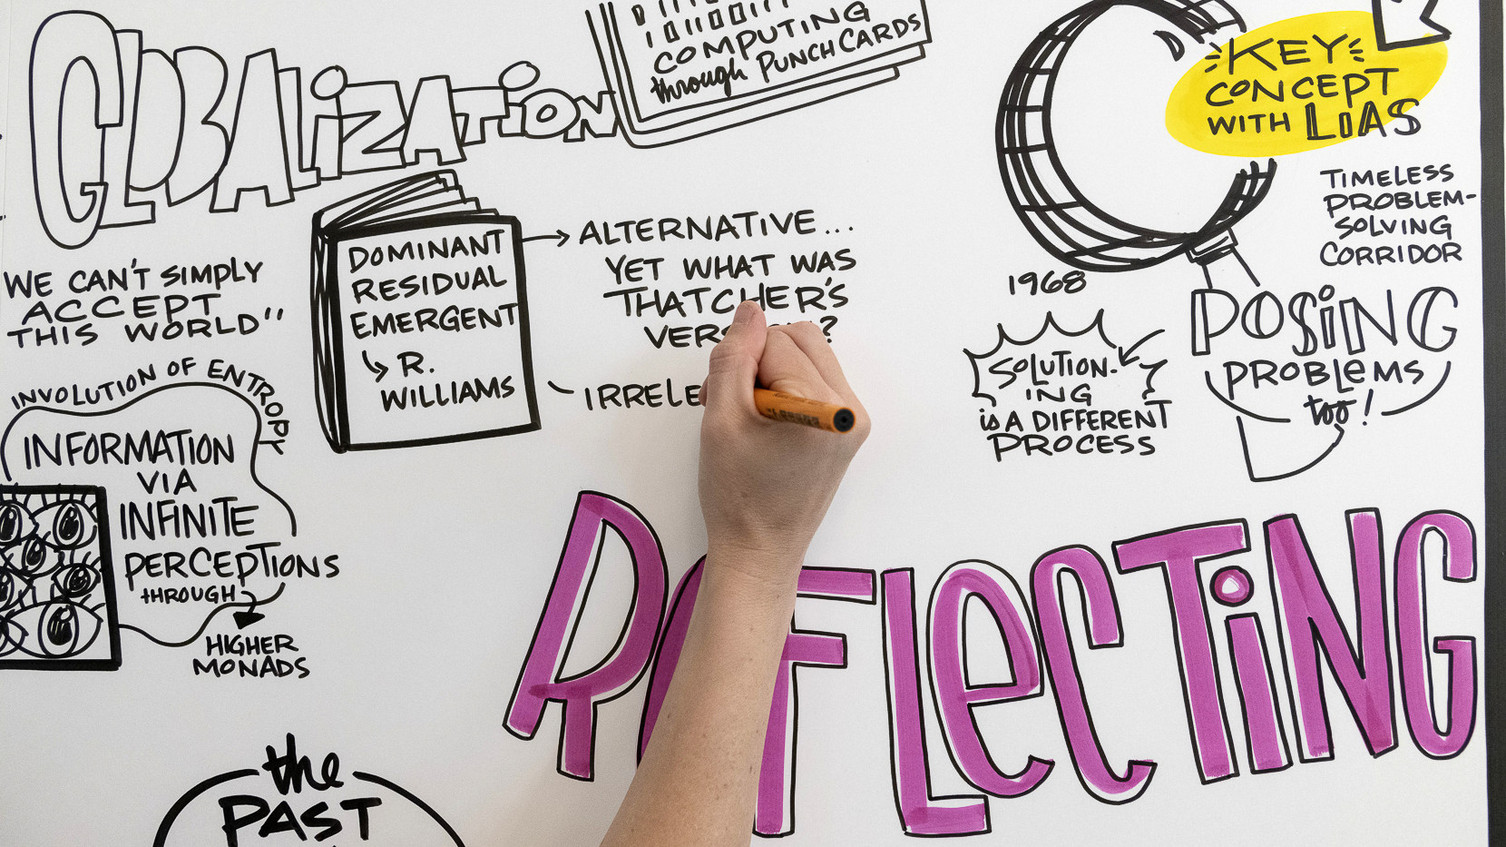 GLOBALiZATiON
COMPUTING
through PUNCH CARDS
KEY
CONCEPT
WITH LIAS
TIMELESS
PROBLEM-
SOLVING
CORRIDOR
WE CAN'T SIMPLY
ACCEPT
THIS WORLD"
DOMINANT
RESIDUAL
EMERGENT
R.
WILLIAMS
ALTERNATIVE...
YET WHAT WAS
THATCHER'S
?
1968
SOLUTION-
ING
is A DIFFERENT
PROCESS
POSiNG
PROBLeMS
too!
INVOLUTION OF ENTROPY
INFORMATION
VIA
INFINITE
PERCEPTIONS
THROUGH
HIGHER
MONADS
ReFLeCTiNG
the
PAST